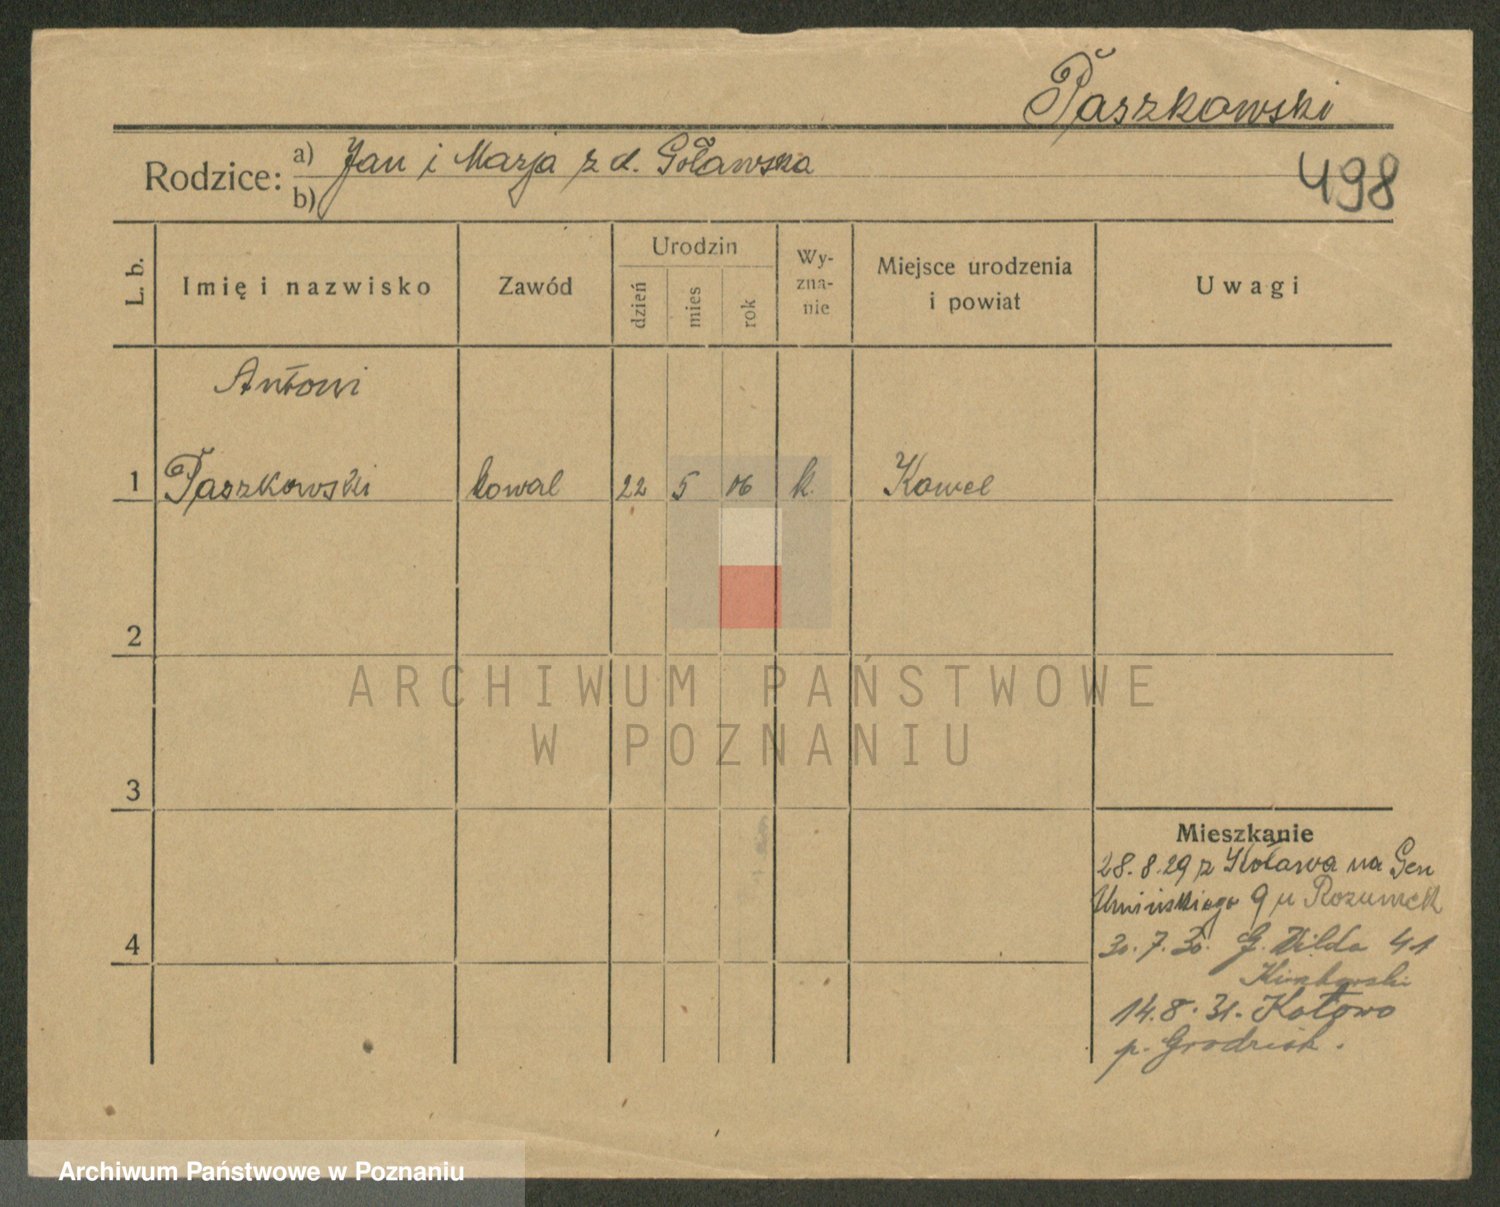 Paszkowski
Rodzice: a) Jan i Marja z d. Goławska
b)
498
L. b.
Imię i nazwisko
Zawód
Urodzin
dzień
mies
rok
Wy-
zna-
nie
Miejsce urodzenia
i powiat
Uwagi
Antoni
1 Paszkowski kowal 22 5 06 k. Kowel
2
ARCHIWUM PAŃSTWOWE
W POZNANIU
3
4
Mieszkanie
28.8.29 z na Gen
Umińskiego 9 u Rozumek
30.7.30. G. Wilda 41
14.8.31. Kotowo
p. Grodzisk.
Archiwum Państwowe w Poznaniu